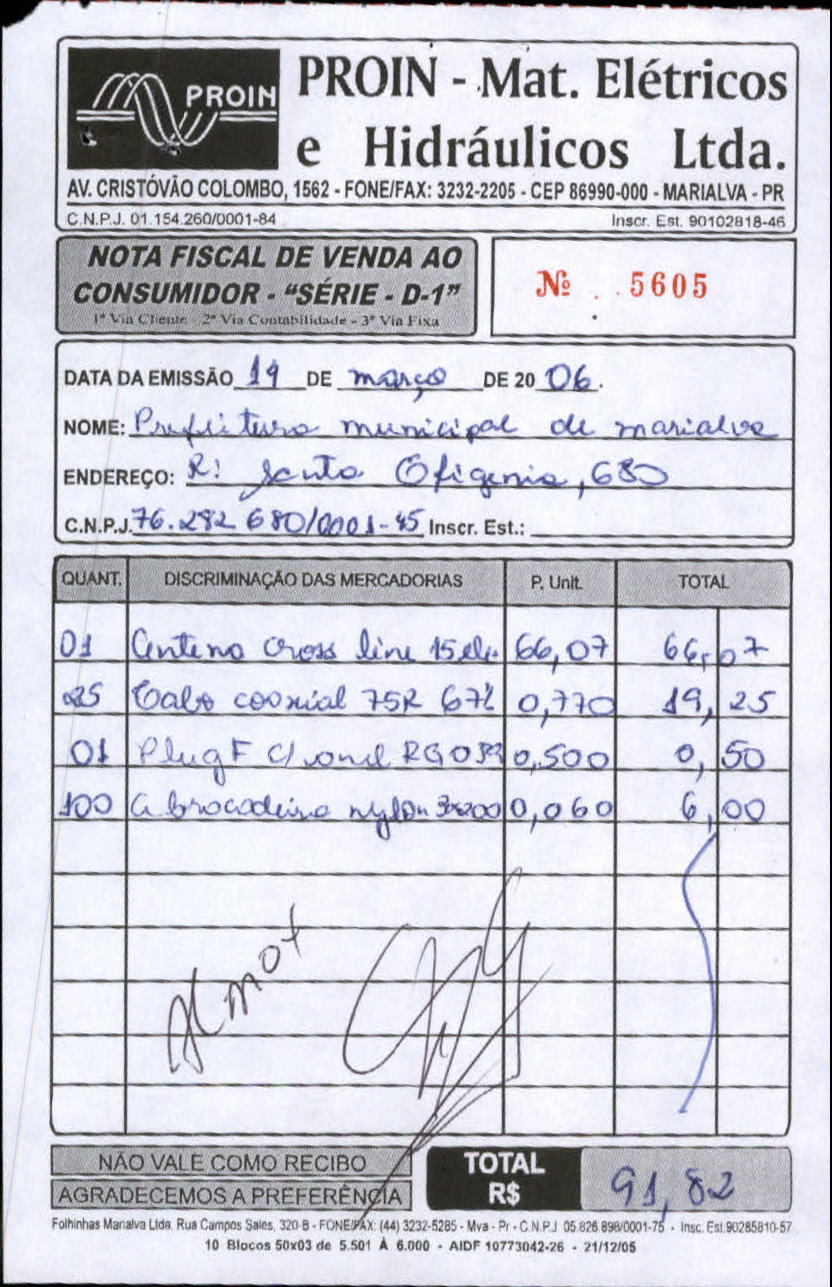 PROIN
PROIN - Mat. Elétricos
e Hidráulicos Ltda.
AV. CRISTÓVÃO COLOMBO, 1562 - FONE/FAX: 3232-2205 - CEP 86990-000 - MARIALVA - PR
C.N.P.J. 01.154.260/0001-84 Inscr. Est. 90102818-46
NOTA FISCAL DE VENDA AO
CONSUMIDOR - “SÉRIE - D-1”
1ª Via Cliente - 2ª Via Contabilidade - 3ª Via Fixa
Nº 5605
DATA DA EMISSÃO 19 DE março DE 20 06.
NOME: Prefeitura municipal de marialva
ENDEREÇO: R: Santa Efigenia, 680
C.N.P.J. 76.282 680/0001-45 Inscr. Est.:
QUANT. DISCRIMINAÇÃO DAS MERCADORIAS P. Unit. TOTAL
01 Antena cross line 15ele. 66,07 66,07
25 Cabo coaxial 75R 67% 0,770 19,25
01 Plug F c/ RG059 0,500 0,50
100 Abracadeira nylon 0,060 6,00
Almox
NÃO VALE COMO RECIBO
AGRADECEMOS A PREFERÊNCIA
TOTAL R$ 91,82
Folhinhas Marialva Ltda. Rua Campos Sales, 320-B - FONE/FAX: (44) 3232-5285 - Mva - Pr - C.N.P.J. 05.826.898/0001-75 - Insc. Est. 90285810-57
10 Blocos 50x03 de 5.501 À 6.000 - AIDF 10773042-26 - 21/12/05